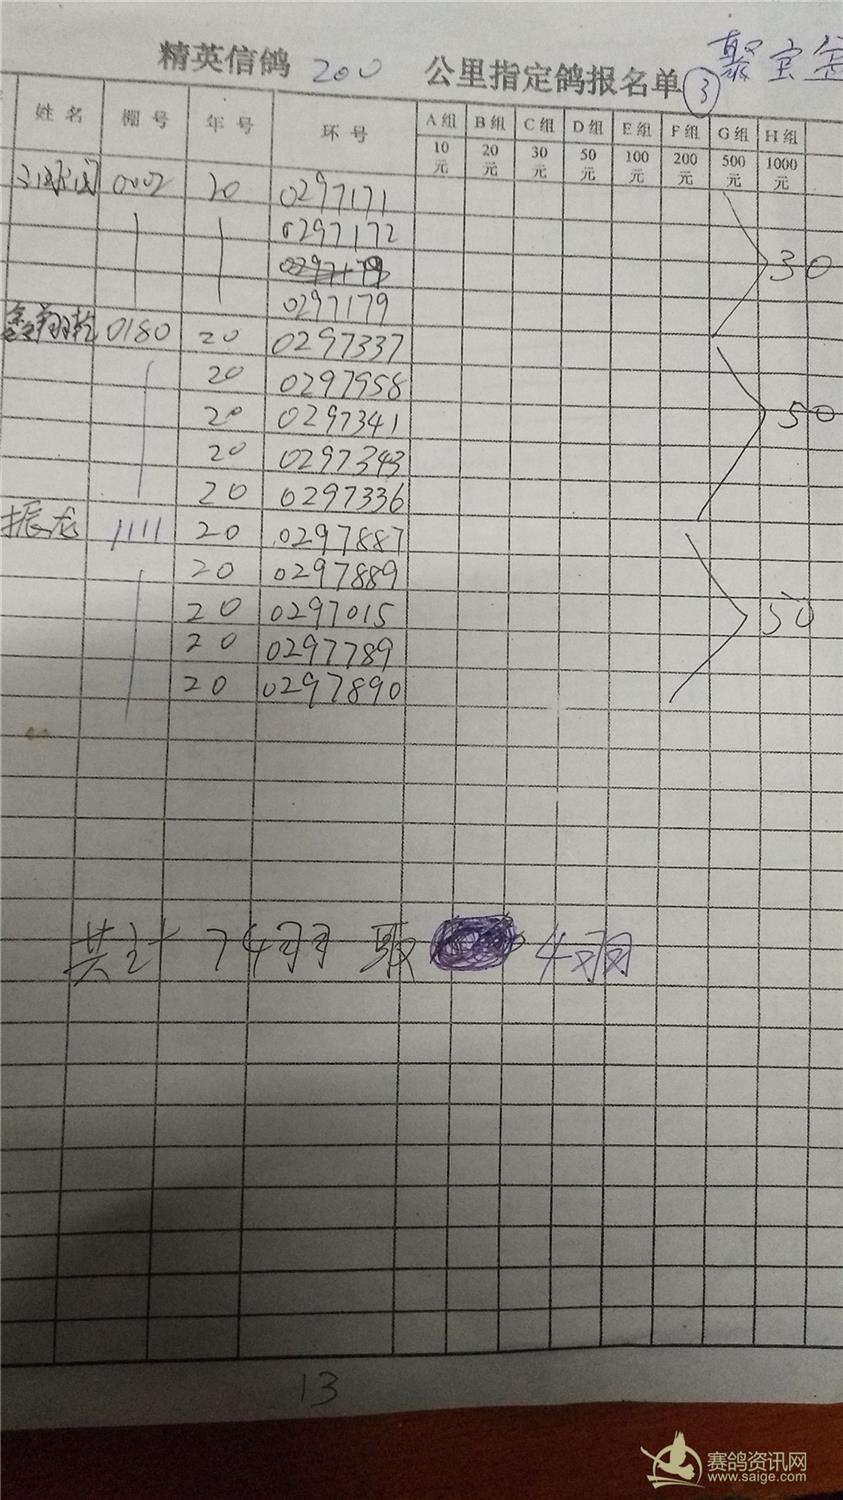 聚宝盆
精英信鸽 200 公里指定鸽报名单 ③
姓名 棚号 年号 环号 A组 B组 C组 D组 E组 F组 G组 H组
10元 20元 30元 50元 100元 200元 500元 1000元
0002 20 0297171
0297172
30
0297179
鑫翔乾 0180 20 0297337
20 0297958
20 0297341 50
20 0297343
20 0297336
振龙 1111 20 0297887
20 0297889
20 0297015 50
20 0297789
20 0297890
共计 74羽 取 4羽
13
赛鸽资讯网
www.saige.com